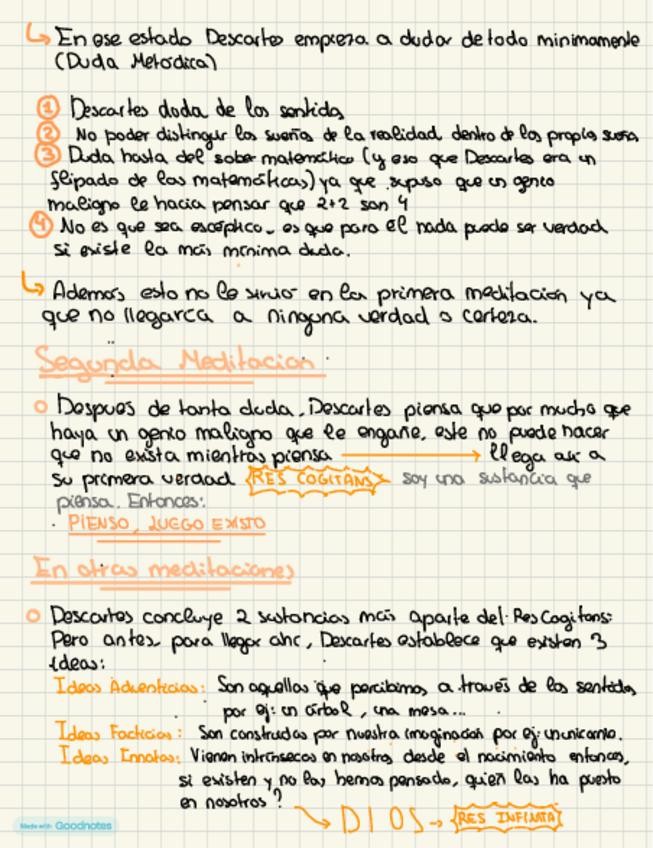 ↳ En ese estado Descartes empieza a dudar de todo minimamente
(Duda Metodica)
① Descartes duda de los sentidos
② No poder distinguir los sueños de la realidad dentro de los propios sueños
③ Duda hasta del saber matemático (y eso que Descartes era un
flipado de las matemáticas) ya que supuso que un genio
maligno le hacia pensar que 2+2 son 4
④ No es que sea escéptico, es que para él nada puede ser verdad
si existe la más mínima duda.
↳ Además esto no le sirvio en la primera meditación ya
que no llegarca a ninguna verdad o certeza.
Segunda Meditacion
Despues de tanta duda, Descartes piensa que por mucho que
haya un genio maligno que le engañe, este no puede hacer
que no exista mientras piensa → llega asi a
su primera verdad RES COGITANS soy una sustancia que
piensa. Entonces:
· PIENSO, LUEGO EXISTO
En otras meditaciones
Descartes concluye 2 sustancias más aparte del Res Cogitans:
Pero antes, para llegar ahí, Descartes establece que existen 3
ideas:
Ideas Adventicias: Son aquellas que percibimos a través de los sentidos
por ej: un árbol, una mesa...
Ideas Facticias: Son construidas por nuestra imaginacion por ej: un unicornio.
Ideas Innatas: Vienen intrínsecas en nosotros desde el nacimiento entonces,
si existen y no las hemos pensado, quien las ha puesto
en nosotros?
→ DIOS → RES INFINITA
Made with Goodnotes